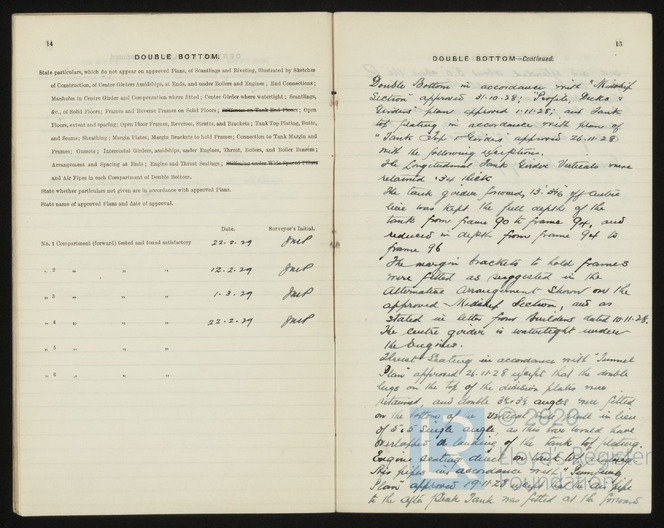 14
DOUBLE BOTTOM.
State particulars, which do not appear on approved Plans, of Scantlings and Riveting, illustrated by Sketches
of Construction, of Centre Girders Amidships, at Ends, and under Boilers and Engines; End Connections;
Manholes in Centre Girder and Compensation where fitted; Centre Girder where watertight; Scantlings,
&c., of Solid Floors; Frames and Reverse Frames on Solid Floors; Stiffeners on Tank End Floors; Open
Floors, extent and spacing; Open Floor Frames, Reverses, Struts, and Brackets; Tank Top Plating, Butts,
and Seams; Sheathing; Margin Plates; Margin Brackets to hold Frames; Connection to Tank Margin and
Frames; Gussets; Intercostal Girders, amidships, under Engines, Thrust, Boilers, and Boiler Bearers;
Arrangement and Spacing at Ends; Engine and Thrust Seatings; Stiffening under Wide Spaced Pillars
and Air Pipes in each Compartment of Double Bottom.
State whether particulars not given are in accordance with approved Plans.
State name of approved Plans and date of approval.
Date. Surveyor's Initial.
No. 1 Compartment (forward) tested and found satisfactory 22.2.29
„ 2 „ „ „ 12.2.29
„ 3 „ „ „ 1.3.29
„ 4 „ „ „ 22.2.29
„ 5 „ „ „
„ 6 „ „ „
15
DOUBLE BOTTOM—Continued.
Double Bottom in accordance with "Midship
Section" approved 31.10.28; "Profile, Decks &
Girders" plans approved 1.11.28; and Tank
top plating in accordance with plans of
"Tank Top & Girders" approved 26.11.28
with the following exceptions.
The Longitudinal Tank Girder Verticals were
retained .34 thick
The tank girders forward, 13'-3½ off centre
line was kept the full depth of the
tank from frame 90 to frame 94, and
reduced in depth from frame 94 to
frame 96
The margin brackets to hold frames
were fitted as suggested in the
Alternative Arrangement shown on the
approved Midship Section, and as
stated in letter from Builders dated 10.11.28.
The centre girder is watertight under
the Engines.
Thrust Seating in accordance with "Tunnel
Plan" approved 26.11.28 except that the double
lugs on the top of the division plates were
retained, and double angles were fitted
on the bottom of in lieu
of 5x5 single angle, as this bars would have
overlapped a landing of the tank top plating.
Engine seating direct on tank top plating.
Air pipes in accordance with "Pumping
Plan" approved 19.11.28 except
to the after Peak Tank was fitted at the forward
© 2020
Lloyd's Register
Foundation